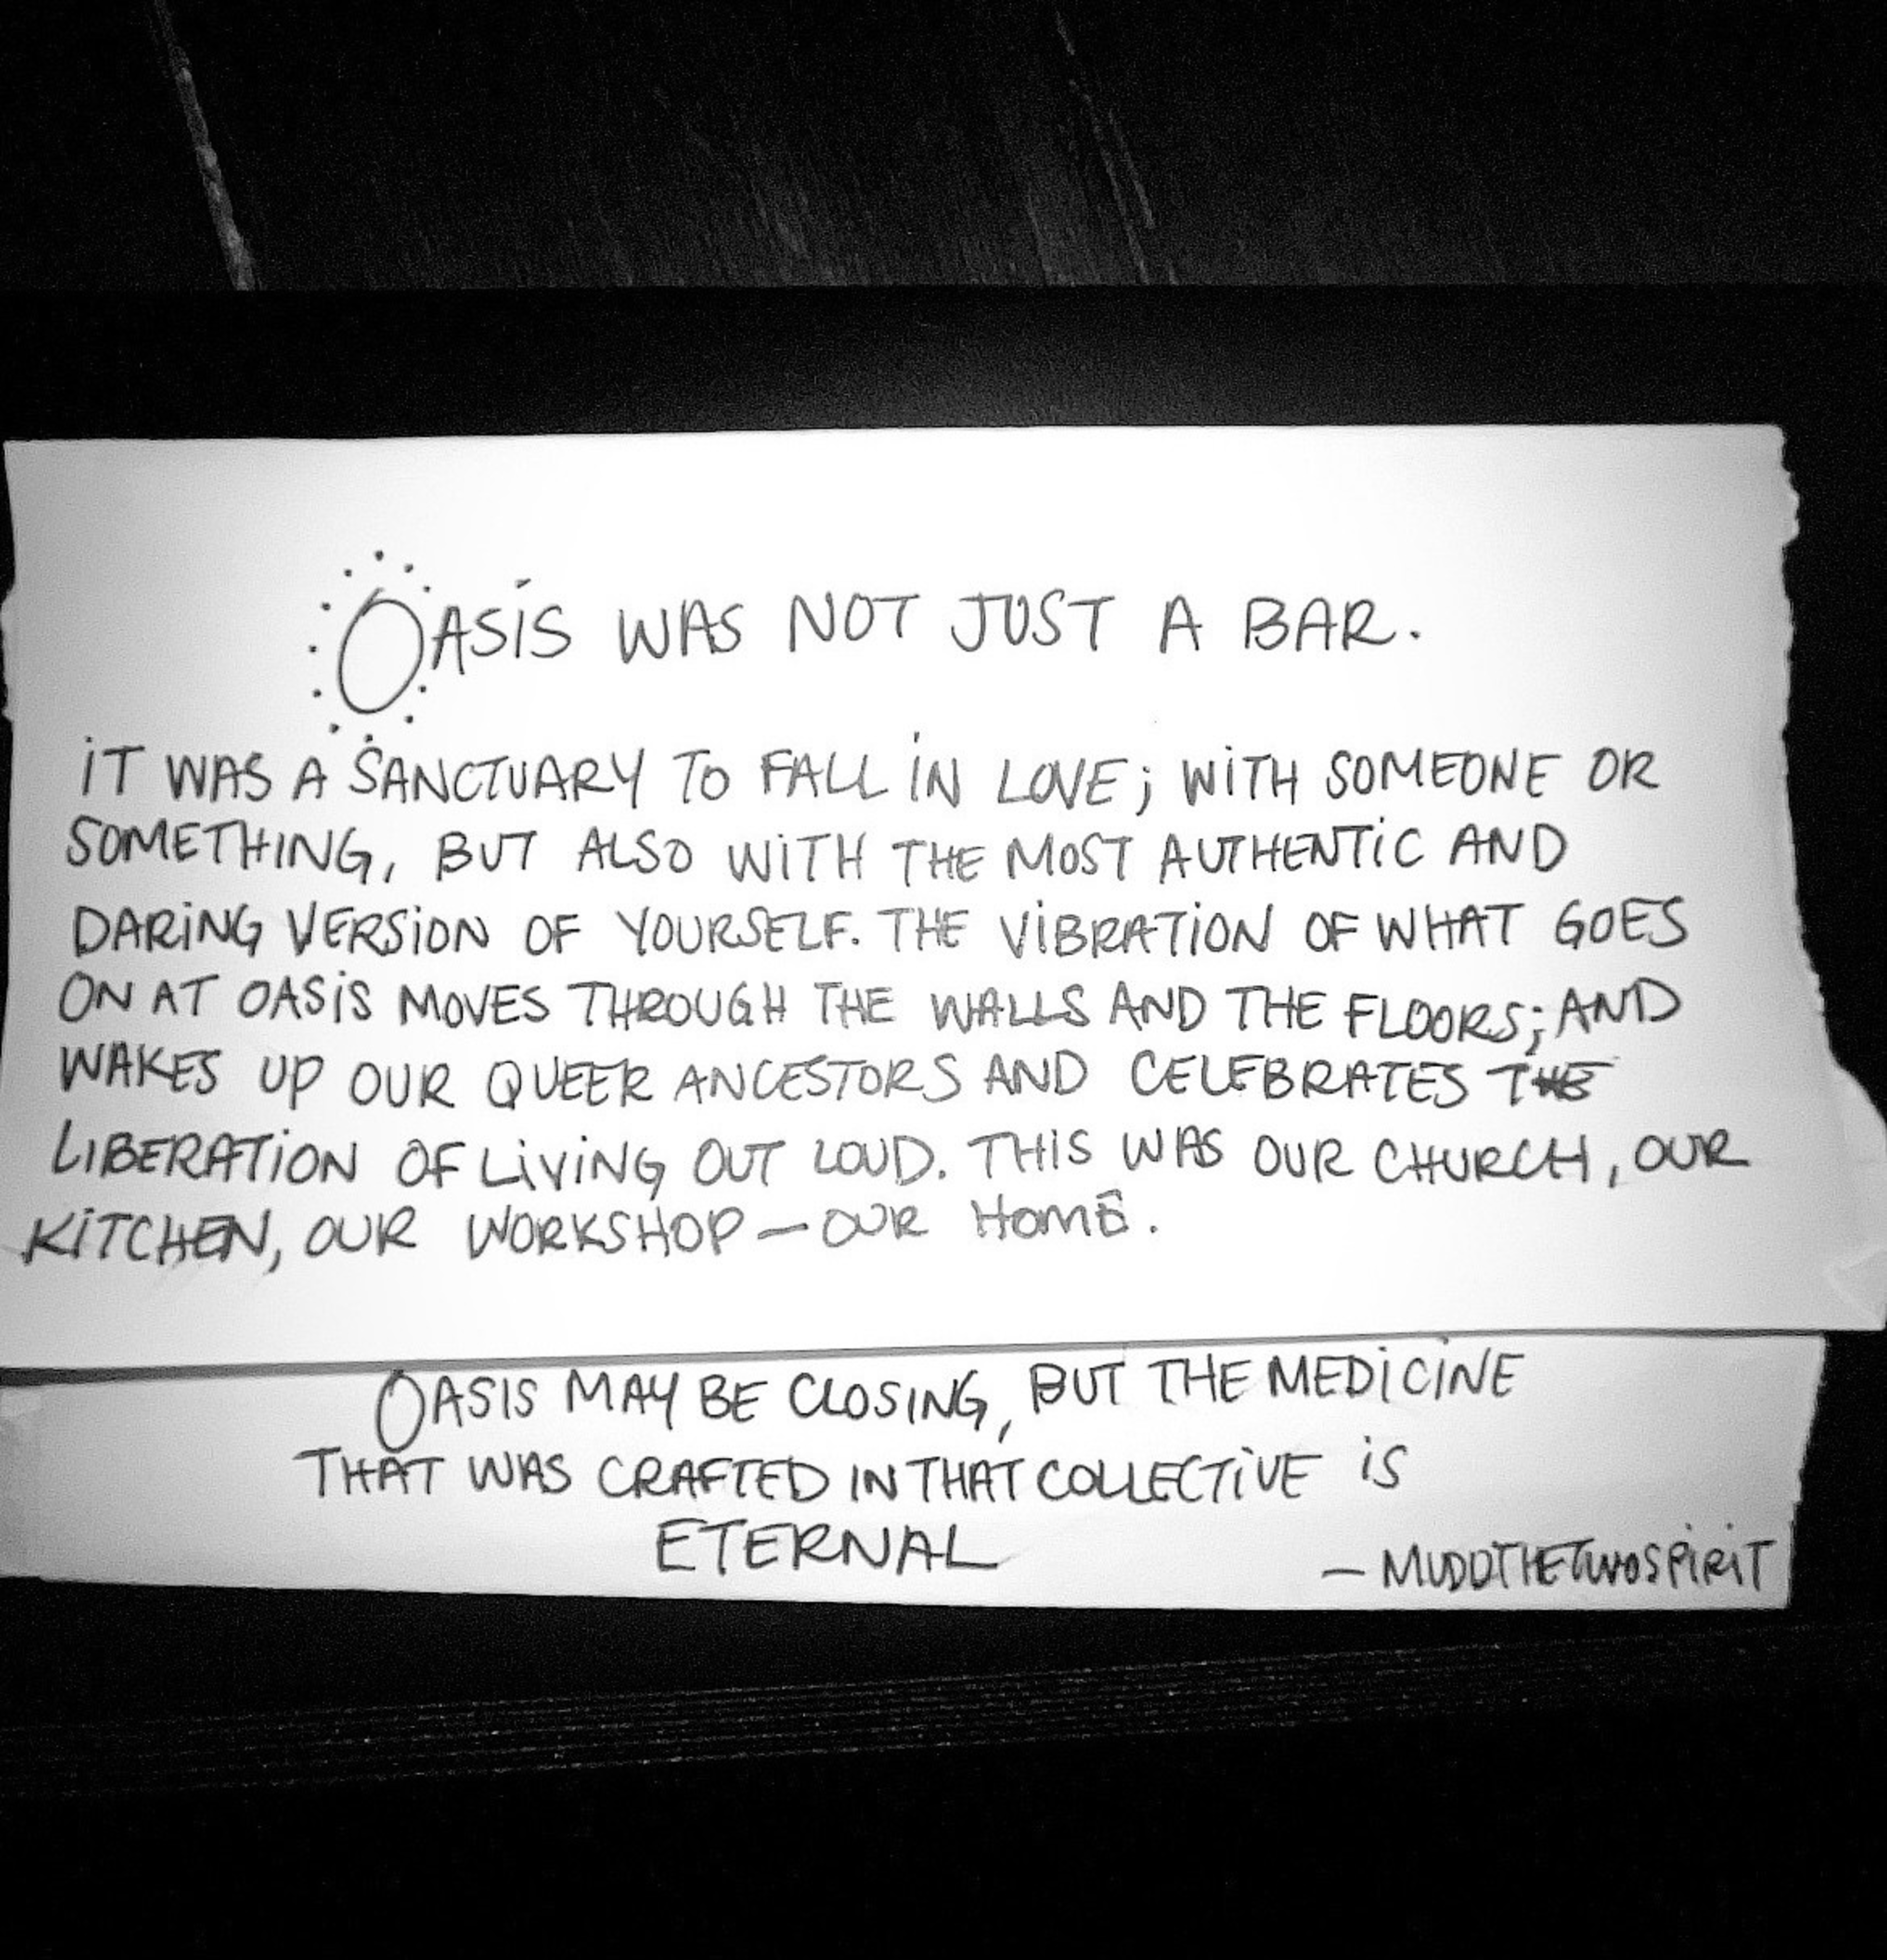 OASIS WAS NOT JUST A BAR.
IT WAS A SANCTUARY TO FALL IN LOVE; WITH SOMEONE OR
SOMETHING, BUT ALSO WITH THE MOST AUTHENTIC AND
DARING VERSION OF YOURSELF. THE VIBRATION OF WHAT GOES
ON AT OASIS MOVES THROUGH THE WALLS AND THE FLOORS; AND
WAKES UP OUR QUEER ANCESTORS AND CELEBRATES THE
LIBERATION OF LIVING OUT LOUD. THIS WAS OUR CHURCH, OUR
KITCHEN, OUR WORKSHOP — OUR HOME.
OASIS MAY BE CLOSING, BUT THE MEDICINE
THAT WAS CRAFTED IN THAT COLLECTIVE IS
ETERNAL
— MUDDTHETWOSPIRIT